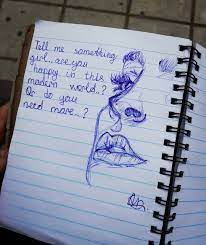 Tell me something
girl.. are you
happy in this
modern world..?
Or do you
need more..?